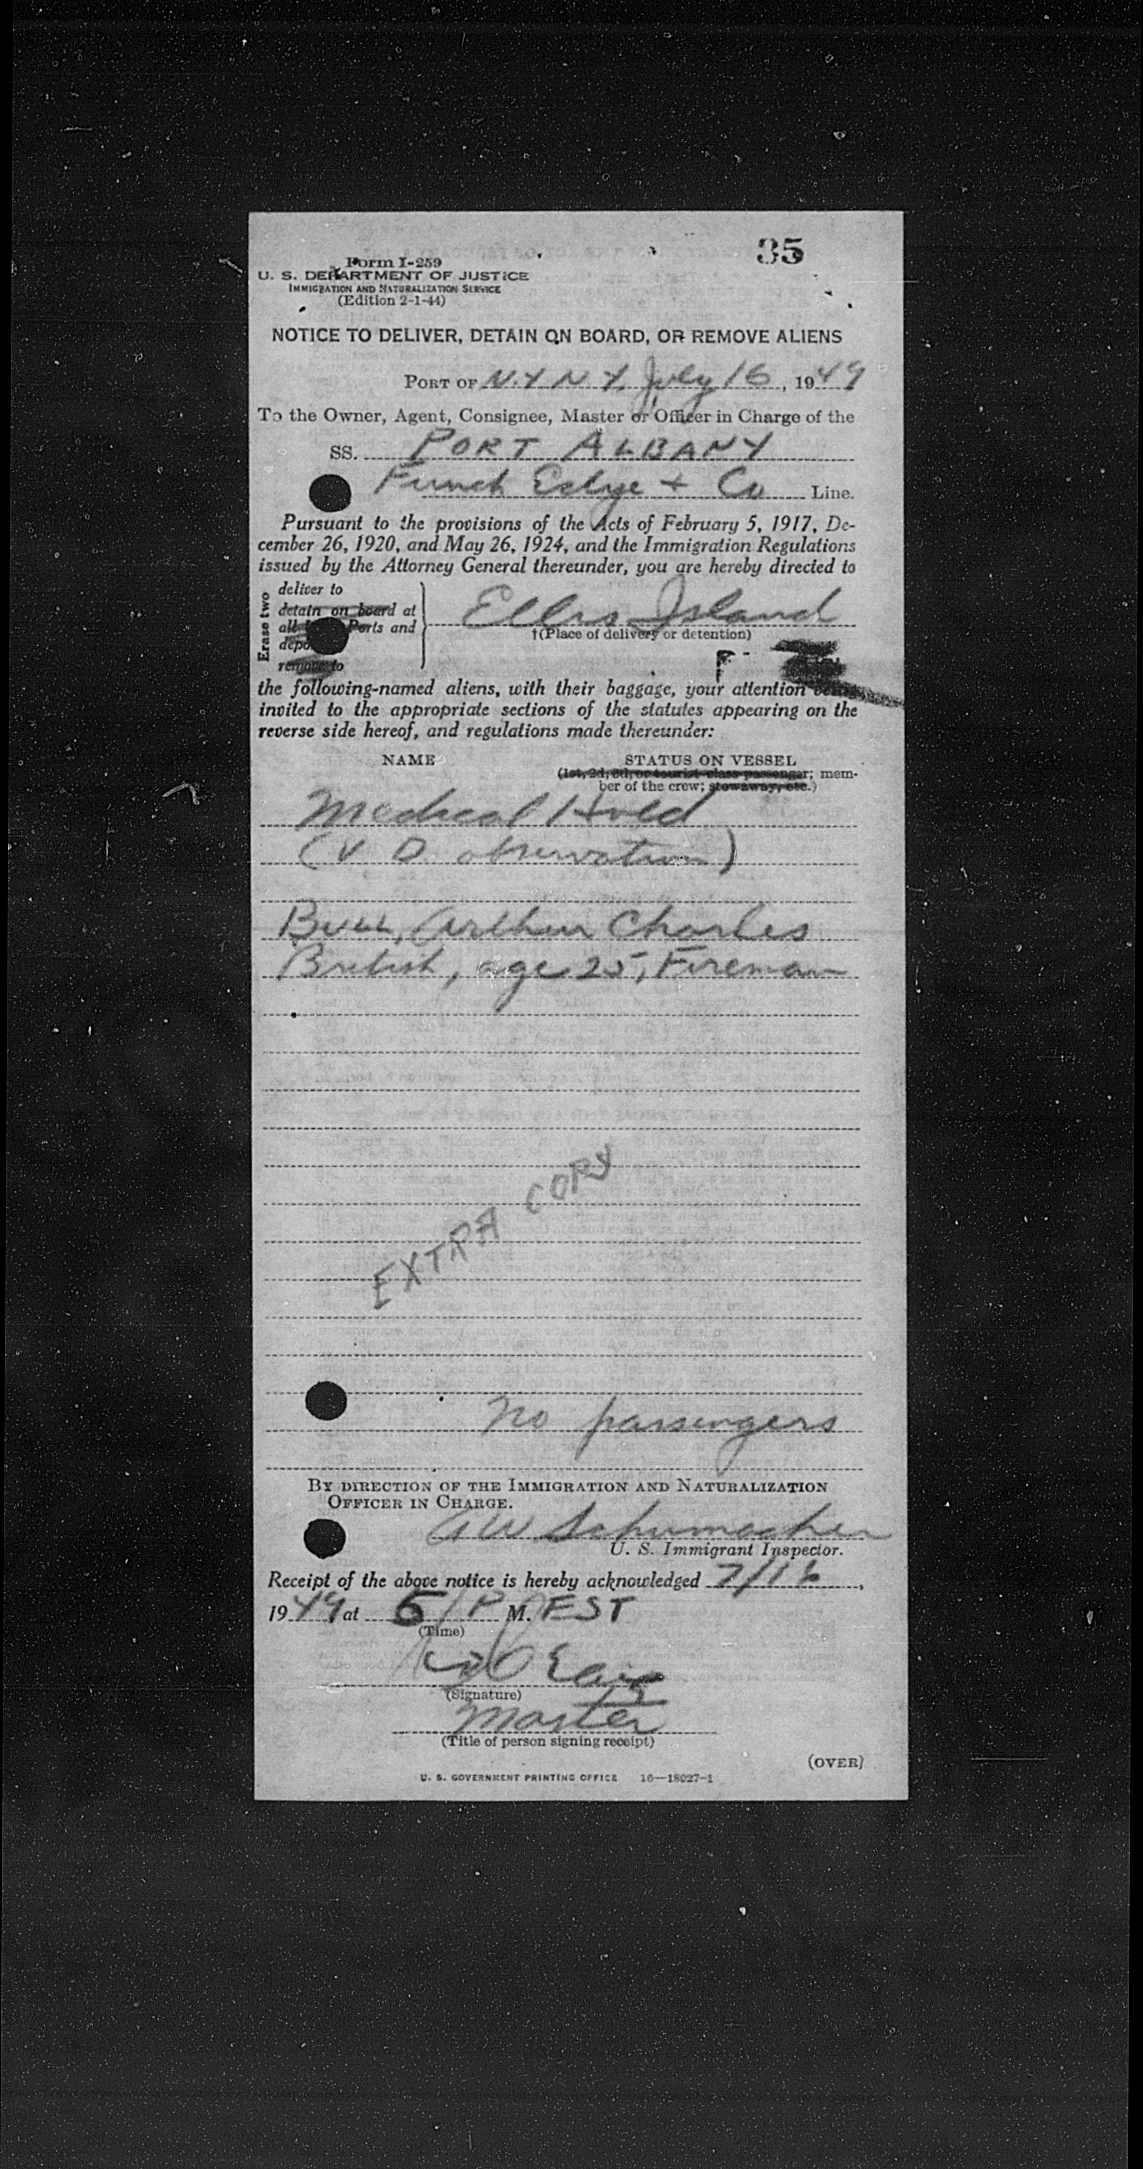 35
Form I-259
U. S. DEPARTMENT OF JUSTICE
IMMIGRATION AND NATURALIZATION SERVICE
(Edition 2-1-44)
NOTICE TO DELIVER, DETAIN ON BOARD, OR REMOVE ALIENS
PORT OF N.Y N.Y. July 16, 1949
To the Owner, Agent, Consignee, Master or Officer in Charge of the
SS. PORT ALBANY
Funch Edye + Co Line.
Pursuant to the provisions of the Acts of February 5, 1917, De-
cember 26, 1920, and May 26, 1924, and the Immigration Regulations
issued by the Attorney General thereunder, you are hereby directed to
Erase two
deliver to
detain on board at
all Ports and
remove to
Ellis Island
†(Place of delivery or detention)
the following-named aliens, with their baggage, your attention being
invited to the appropriate sections of the statutes appearing on the
reverse side hereof, and regulations made thereunder:
NAME STATUS ON VESSEL
(1st, 2d, 3d, or tourist class passenger; mem-
ber of the crew; stowaway, etc.)
Medical Hold
(V D observation)
Arthur Charles
British, age 25, Fireman
EXTRA COPY
No passengers
BY DIRECTION OF THE IMMIGRATION AND NATURALIZATION
OFFICER IN CHARGE.
A W Schumacher
U. S. Immigrant Inspector.
Receipt of the above notice is hereby acknowledged 7/16,
1949 at 5 / P M. EST
(Time)
(Signature)
Master
(Title of person signing receipt)
(OVER)
U. S. GOVERNMENT PRINTING OFFICE 16—18027-1